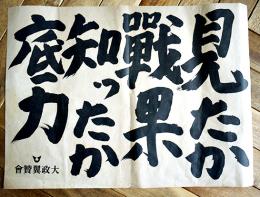 見たか
戰果
知ったか
底力
大政翼贊會